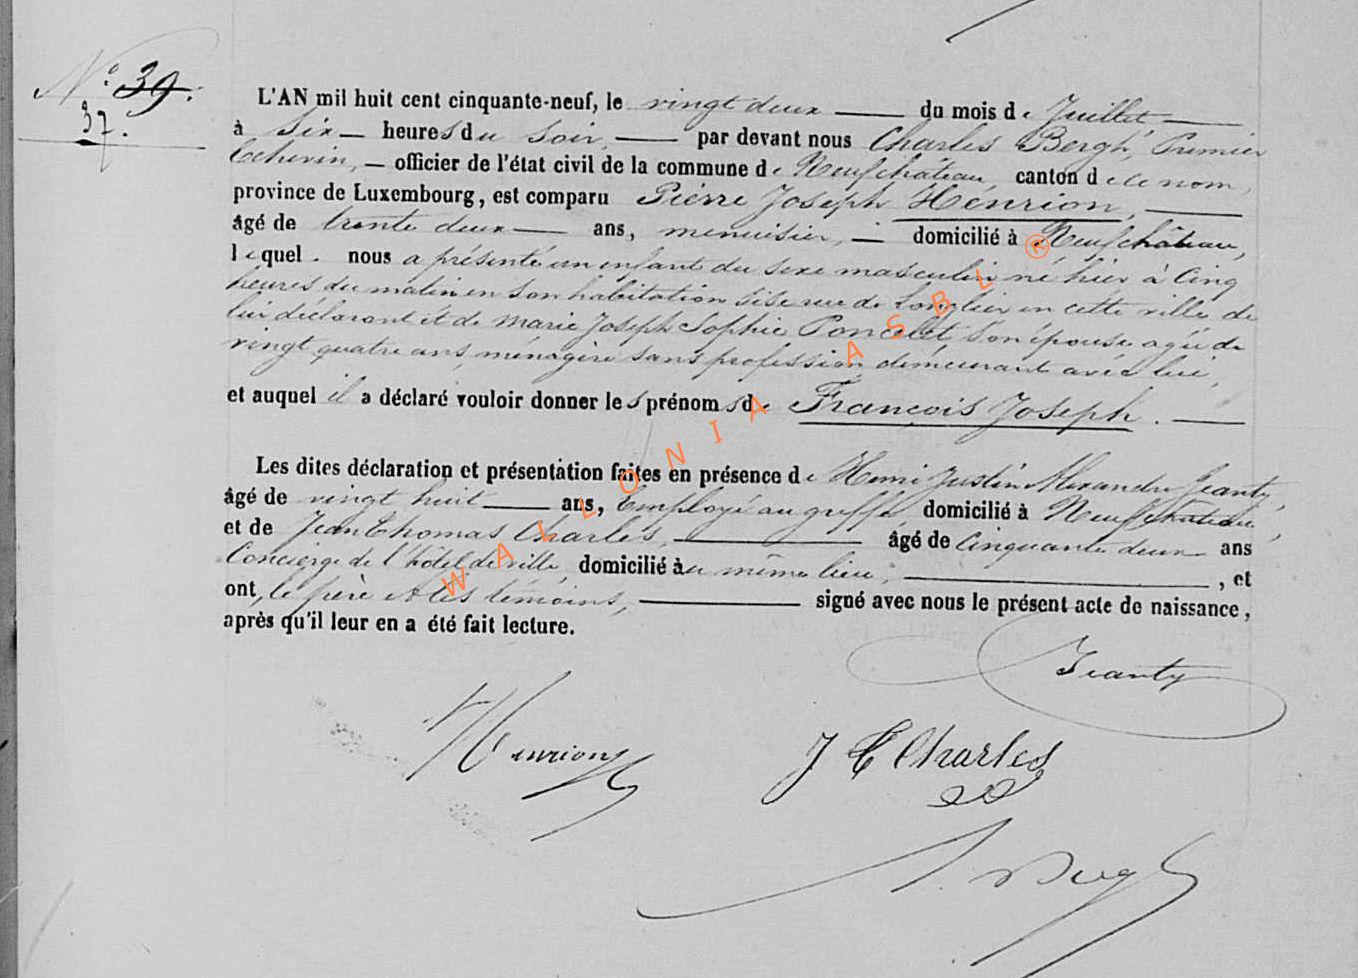 N° 39.
37.
L'AN mil huit cent cinquante-neuf, le vingt deux du mois de Juillet
à Six heures du Soir, par devant nous Charles Bergh, Premier
Echevin, officier de l'état civil de la commune de Neufchâteau, canton de ce nom,
province de Luxembourg, est comparu Pierre Joseph Henrion,
âgé de trente deux ans, menuisier, domicilié à Neufchâteau,
lequel nous a présenté un enfant du sexe masculin né hier à Cinq
heures du matin en son habitation sise rue de Longlier en cette ville de
lui déclarant et de Marie Joseph Sophie Poncelet son épouse agée de
vingt quatre ans, ménagère sans profession demeurant avec lui,
et auquel il a déclaré vouloir donner les prénoms de François Joseph.
Les dites déclaration et présentation faites en présence de Henri Justin Alexandre Jeanty,
âgé de vingt huit ans, Employé au greffe domicilié à Neufchateau,
et de Jean Thomas Charles, âgé de Cinquante deux ans
Concierge de l'hôtel de ville, domicilié au même lieu, et
ont, le père et les témoins, signé avec nous le présent acte de naissance,
après qu'il leur en a été fait lecture.
Jeanty
Henrion
J T Charles
Bergh
WALLONIA ASBL ®